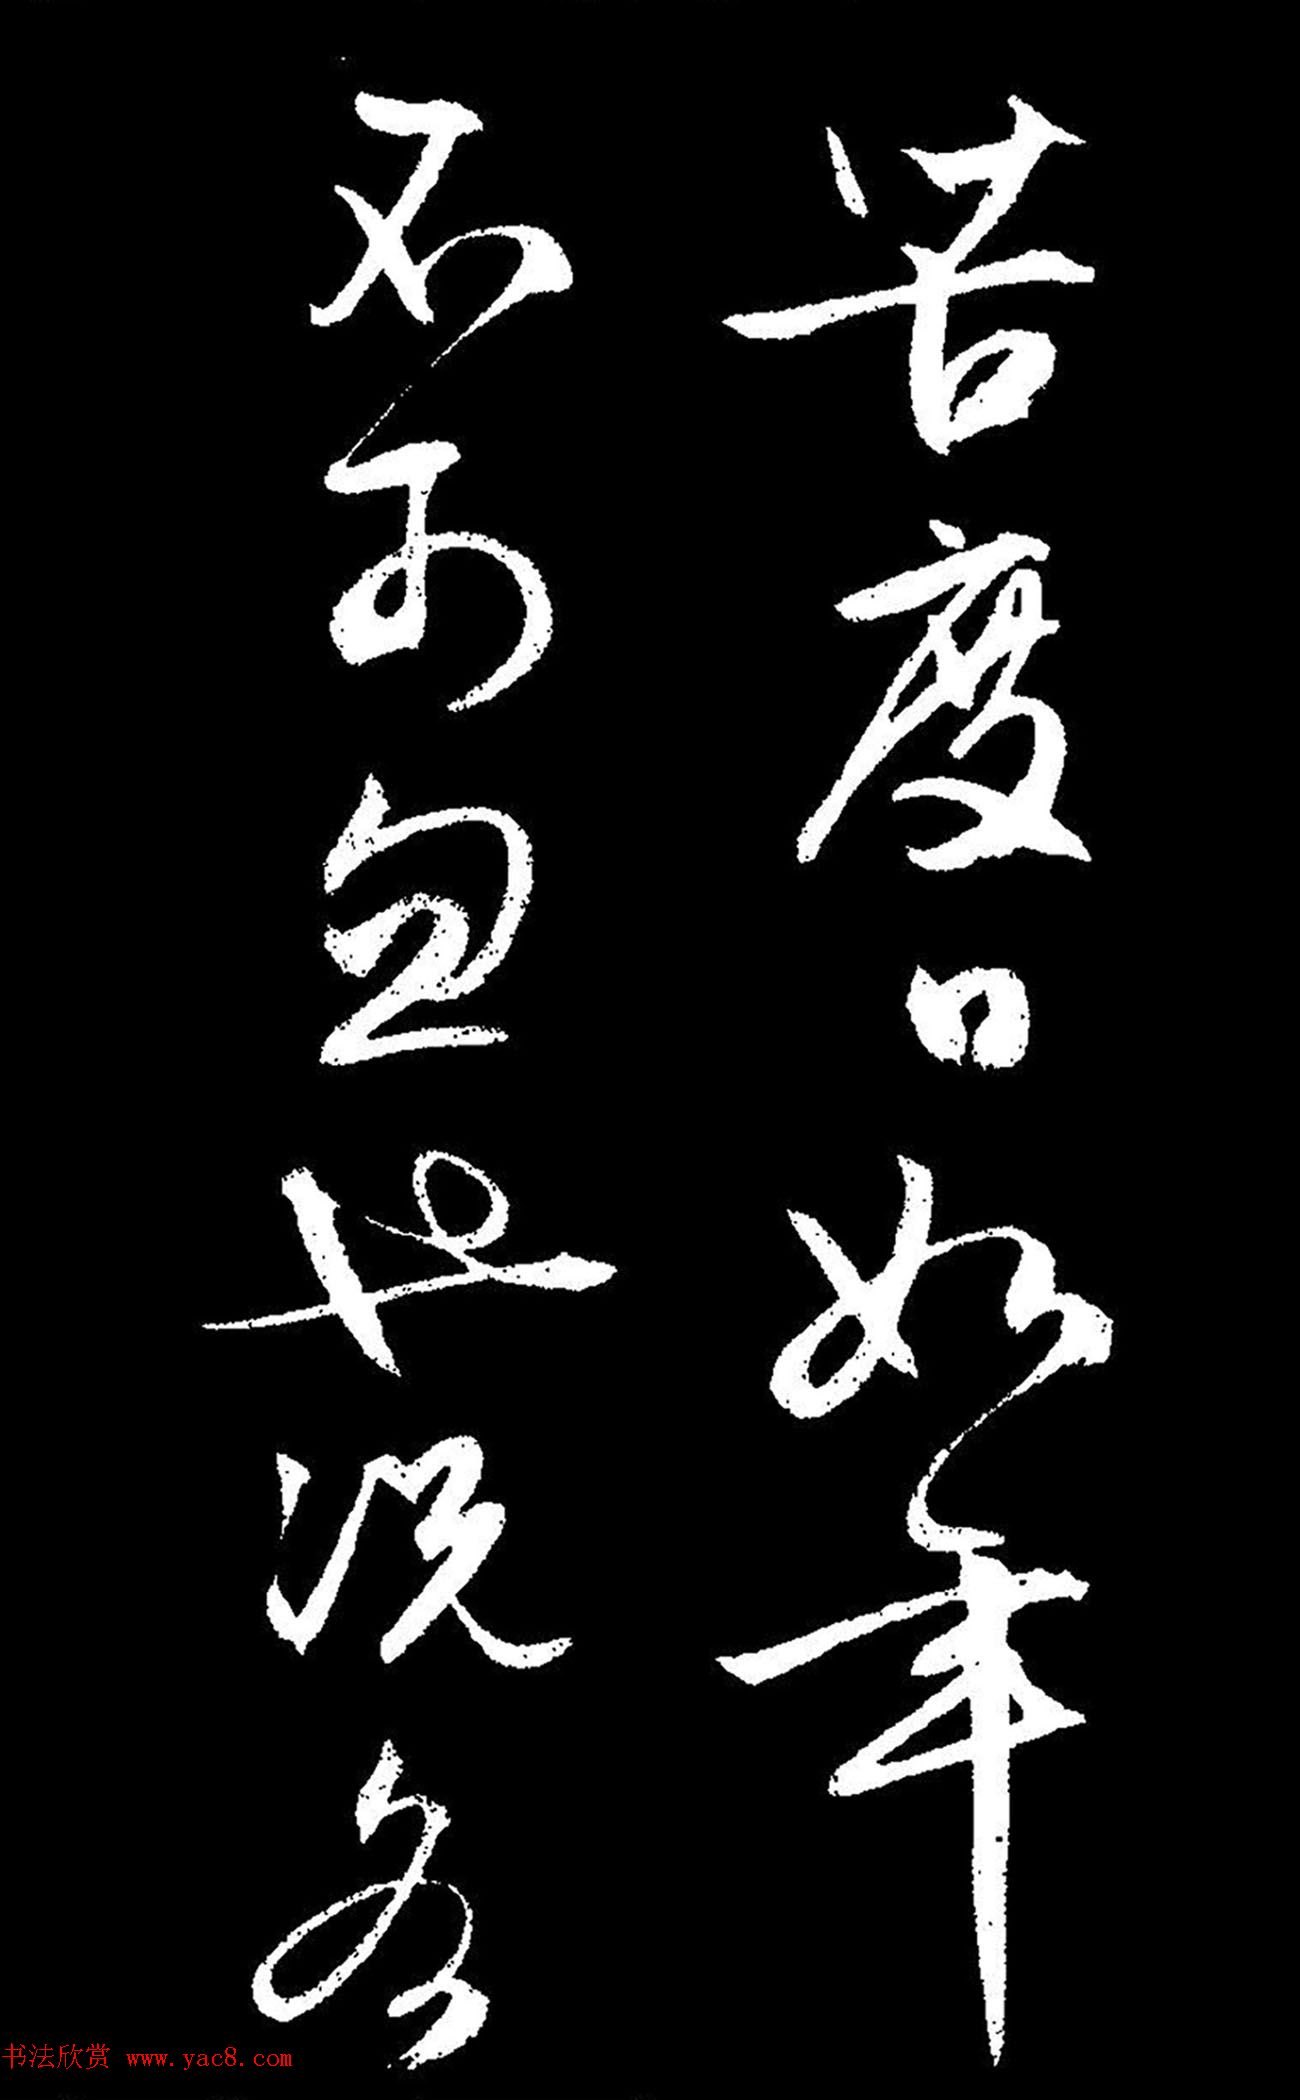 苦度日如年
不可忽也况各
书法欣赏 www.yac8.com